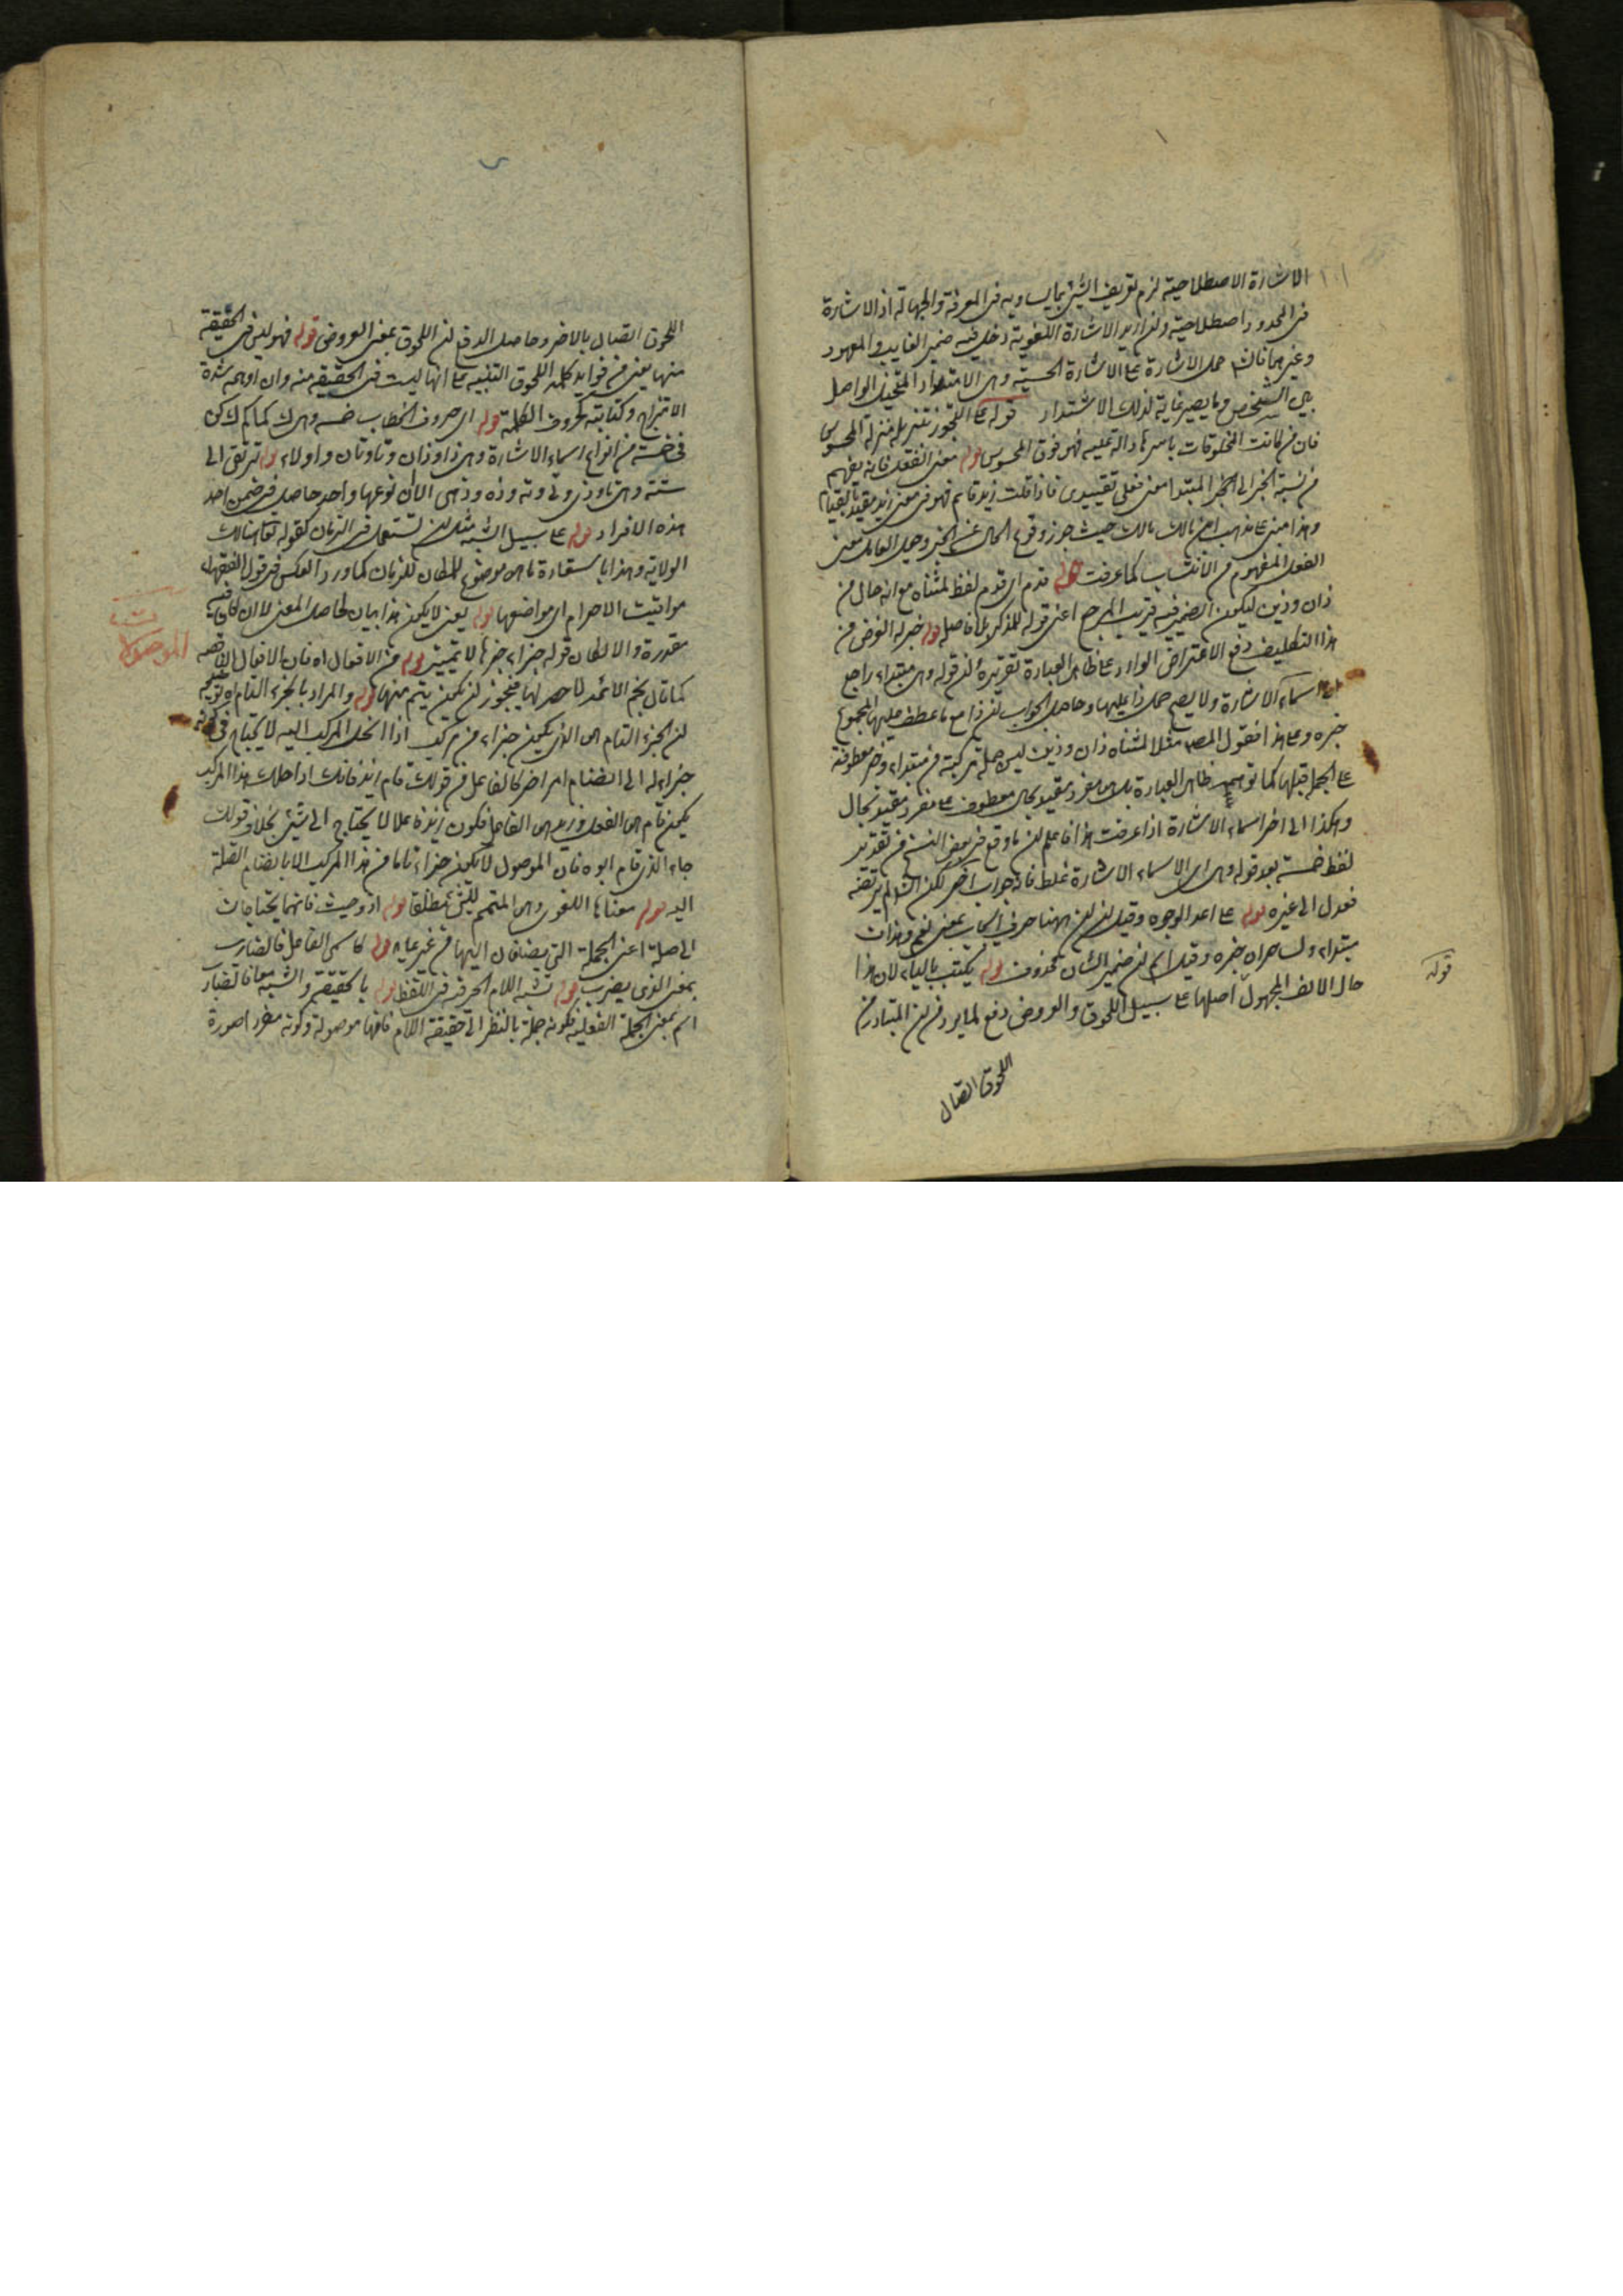 الاشارة الاصطلاحية لزم تعريف الشئ بما يساويه فى المعرفة والجهالة اذ الاشارة
فى المحدود اصطلاحية وان اريد الاشارة اللغوية دخل فيه ضمير الغايب والمعهود
وغيرهما قالش حمل الاشارة على الاشارة الحسية وهى الامتداد المتخيل الواصل
بين الشخص وما يصير غاية لذلك الاشتداد قوله على التجوز بتنزيله منزلة المحسوس
فان من كانت المخلوقات باسرها دالة عليه فهو فوق المحسوس قوله معنى الفعل فانه يفهم
من نسبة الخبر الى المبتدا معنى فعلى تقييدى فاذا قلت زيد قايم فهو فى معنى زيد مقيد بقيام
وهذا مبنى على مذهب ابن مالك حيث جوز وقوع الحال عن الخبر وجعل العامل معنى
الفعل المفهوم من الانتساب كما عرفت قوله قدم اى قدم لفظ لمثناه مع انه حال من
ذان وذين ليكون الضمير فيه قريب المرجع اعنى قوله للمذكر بلا فاصل قوله خبر له الغرض من
هذا التكليف دفع الاعتراض الوارد على ظاهر العبارة تقريره ان قوله وهى مبتداء راجع
الى اسماء الاشارة ولا يصح حمل ذا عليها وحاصل الجواب ان ذا مع ما عطف عليها المجموع
خبره وعلى هذا فقول المص مثلا لمثناه ذان وذين ليس جملة مركبة من مبتداء وخبر معطوفة
على الجمل قبلها كما توهم ظاهر العبارة بل هى مفرد مقيد بحال معطوف على مفرد مقيد بحال
وهكذا الى اخر اسماء الاشارة اذا عرفت هذا فاعلم ان ما وقع فى بعض النسخ من تقدير
لفظ خمسة بعد قوله وهى اى الاسماء الاشارة غلط فانه جواب اخر لكن الش لم يرتضه
فعدل الى غيره قوله على احد الوجوه وقيل ان ان ههنا حرف ايجاب بمعنى نعم وهذان
مبتداء ولساحران خبره وقيل اسم ان ضمير الشان محذوف قوله يكتب بالياء لان هذا
حال الالف المجهول اصلها على سبيل اللحوق والعروض دفع لما يرد من ان المتبادر من
اللحوق اتصال
قوله
اللحوق اتصال بالاخر وحاصل الدفع ان اللحوق بمعنى العروض قوله فهو ليس فى الحقيقة
منها يعنى من فوايد كلمة اللحوق التنبيه على انها ليست فى الحقيقة منه وان اوهم شدة
الامتزاج وكتابته بحروف الكلمة قوله اى حروف الخطاب خمسة وهى ك كما كم ك كن
فى خمسة من انواع اسماء الاشارة وهى ذا وذان وتا وتان واولاء قوله ترتقى الى
ستة وهى تا وذى وتى وته وذه وذهى الا ان نوعها واحد حاصل فى ضمن احد
هذه الافراد قوله على سبيل الشبه مثل ان تستعمل فى الزمان كقوله تعا هنالك
الولاية وهذا باستعارة ما هو موضوع للمكان للزمان كما ورد العكس فى قول الفقهاء
مواقيت الاحرام اى مواضعها قوله يعنى لا يكون هذا بيان لحاصل المعنى لا ان كان فيه
مقدرة والا لكان قوله جزاء خبرها لا تمييز قوله من الافعال اه فان الافعال الناقصة
كما قال نجم الائمة لا حصر لها فيجوز ان يكون يتم منها قوله والمراد بالجزء التام اه توجيه
ان الجزء التام هو الذى يكون جزاء من مركب اذا انحل المركب اليه لا يحتاج فى كونه
جزاء له الى انضمام امر اخر كالفاعل من قولك قام زيد فانك اذا حللت هذا المركب
يكون قام هو الفعل وزيد هو الفاعل فكون زيد فاعلا لا يحتاج الى شئ بخلاف قولك
جاء الذى قام ابوه فان الموصول لا يكون جزاء تاما من هذا المركب الا بانضمام الصلة
اليه قوله معناها اللغوى وهى المتمم للشئ مطلقا قوله اذ وحيث فانهما يحتاجان
الى صلة اعنى الجملة التى يضافان اليها من غير عايد قوله كاسمى الفاعل فالضارب
بمعنى الذى يضرب قوله تشبه اللام الحرفية فى اللفظ قوله بالحقيقة والشبه معا فالضارب
اسم بمعنى الجملة الفعلية فكونه جملة بالنظر الى حقيقة اللام فانها موصولة وكونه مفرد اصورة
الموصولات